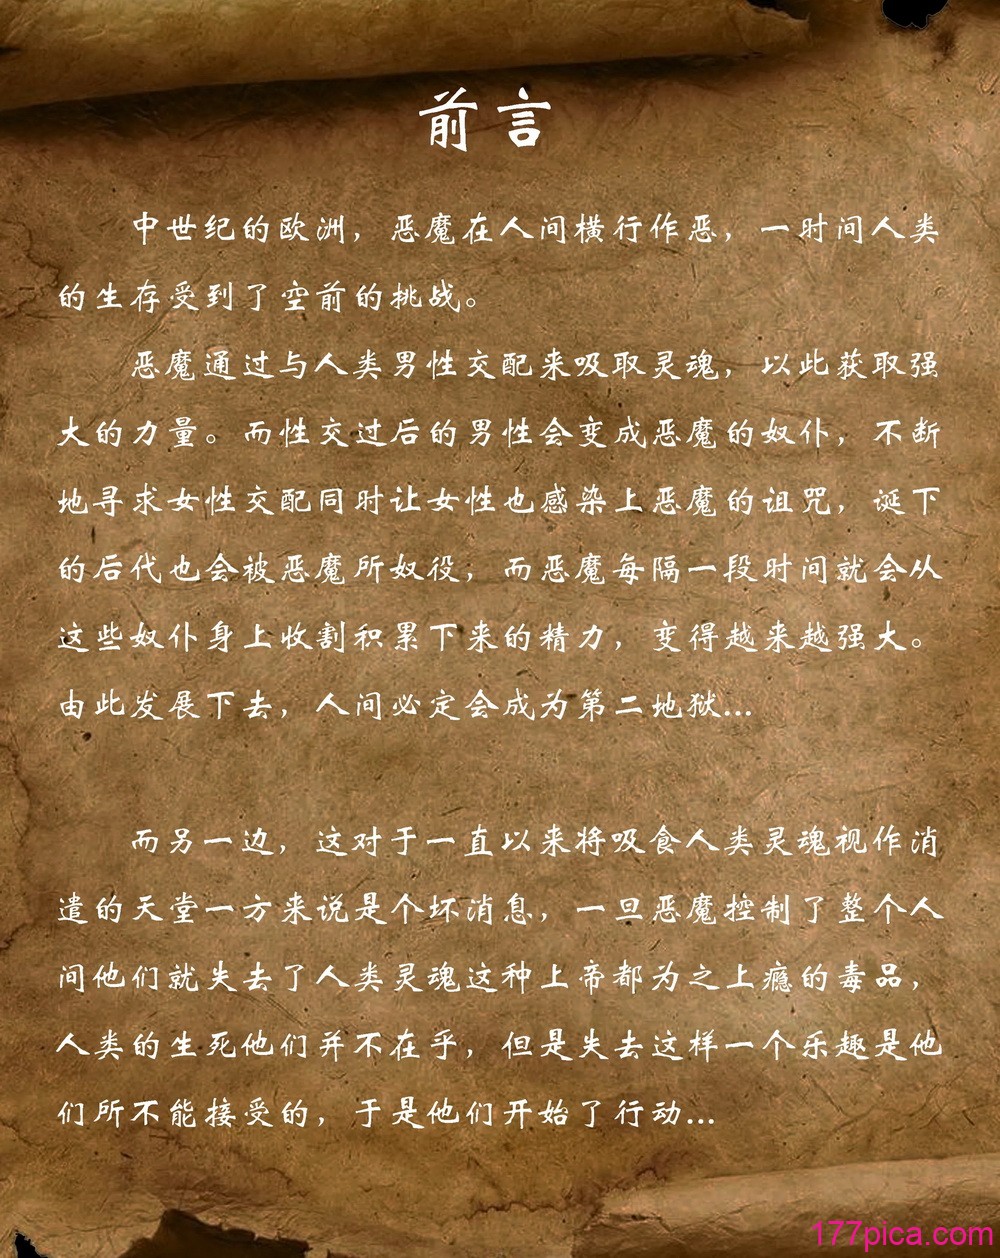 前言
中世纪的欧洲，恶魔在人间横行作恶，一时间人类
的生存受到了空前的挑战。
恶魔通过与人类男性交配来吸取灵魂，以此获取强
大的力量。而性交过后的男性会变成恶魔的奴仆，不断
地寻求女性交配同时让女性也感染上恶魔的诅咒，诞下
的后代也会被恶魔所奴役，而恶魔每隔一段时间就会从
这些奴仆身上收割积累下来的精力，变得越来越强大。
由此发展下去，人间必定会成为第二地狱...
而另一边，这对于一直以来将吸食人类灵魂视作消
遣的天堂一方来说是个坏消息，一旦恶魔控制了整个人
间他们就失去了人类灵魂这种上帝都为之上瘾的毒品，
人类的生死他们并不在乎，但是失去这样一个乐趣是他
们所不能接受的，于是他们开始了行动...
177pica.com